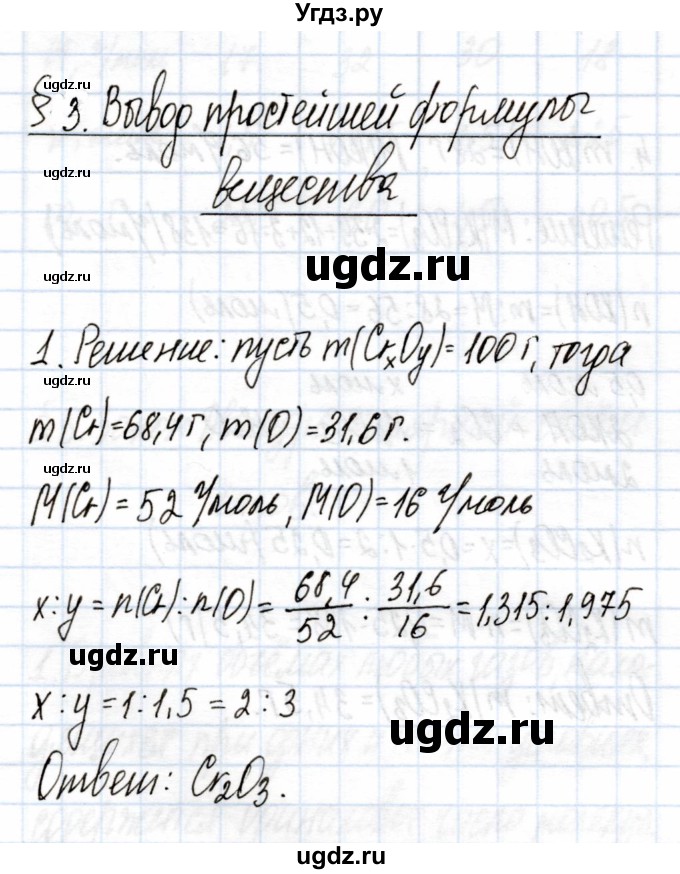 Угдз.ру
ugdz.ru
§ 3. Вывод простейшей формулы
ugdz.ru
вещества
ugdz.ru
ugdz.ru
1. Решение: пусть m(CrxOy) = 100 г, тогда
m(Cr) = 68,4 г, m(O) = 31,6 г.
ugdz.ru
M(Cr) = 52 г/моль, M(O) = 16 г/моль
ugdz.ru
x : y = n(Cr) : n(O) = 68,4/52 : 31,6/16 = 1,315 : 1,975
ugdz.ru
x : y = 1 : 1,5 = 2 : 3
ugdz.ru
Ответ: Cr2O3.
ugdz.ru
ugdz.ru